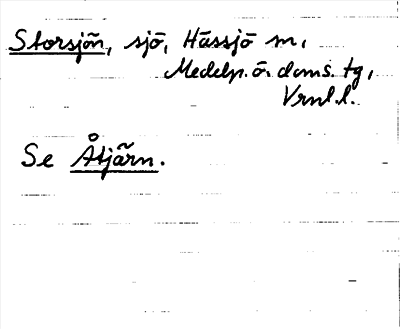 Storsjön, sjö, Hässjö sn,
Medelp. ö. doms. tg,
Vrnl. l.
Se Åtjärn.